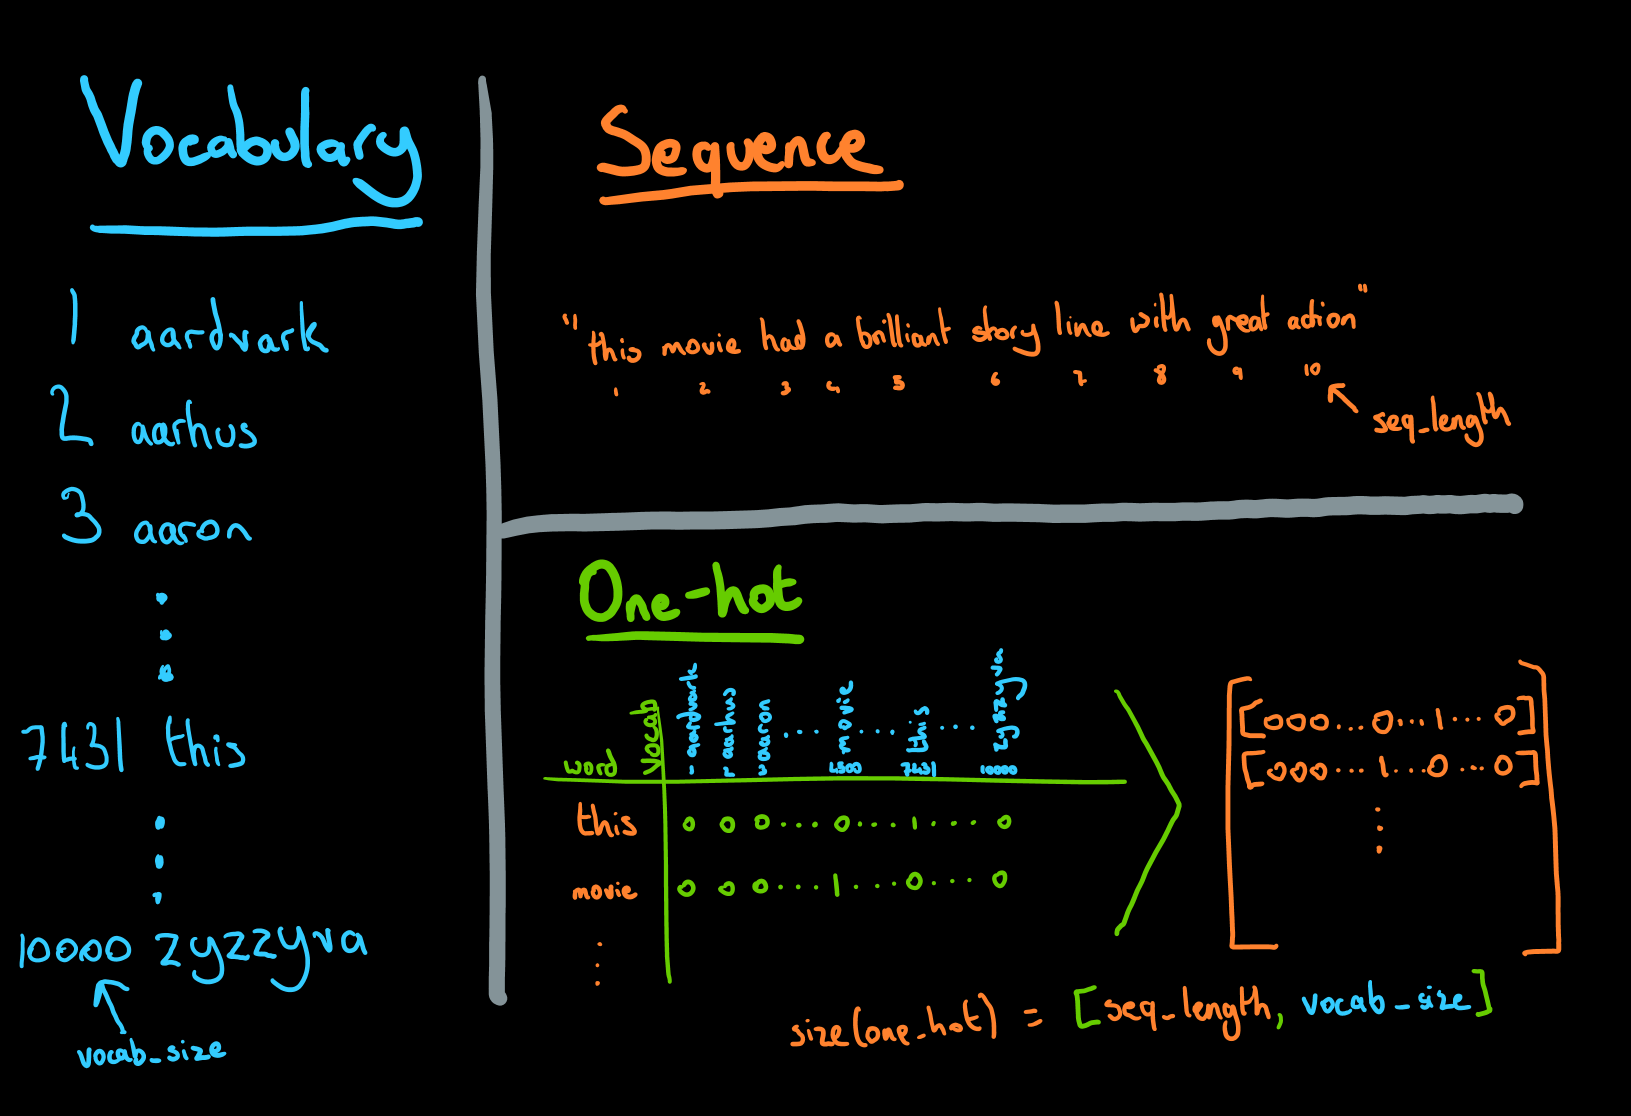 Vocabulary
1 aardvark
2 aarhus
3 aaron
7431 this
10000 zyzzyva
vocab_size
Sequence
"this movie had a brilliant story line with great action"
1 2 3 4 5 6 7 8 9 10
seq_length
One-hot
word vocab
aardvark aarhus aaron .... movie .... this ... zyzzyva
1 2 3 4500 7431 10000
this 0 0 0 .... 0 .... 1 .... 0
movie 0 0 0 .... 1 .... 0 .... 0
[000...0...1...0]
[000...1...0...0]
size(one_hot) = [seq_length, vocab_size]